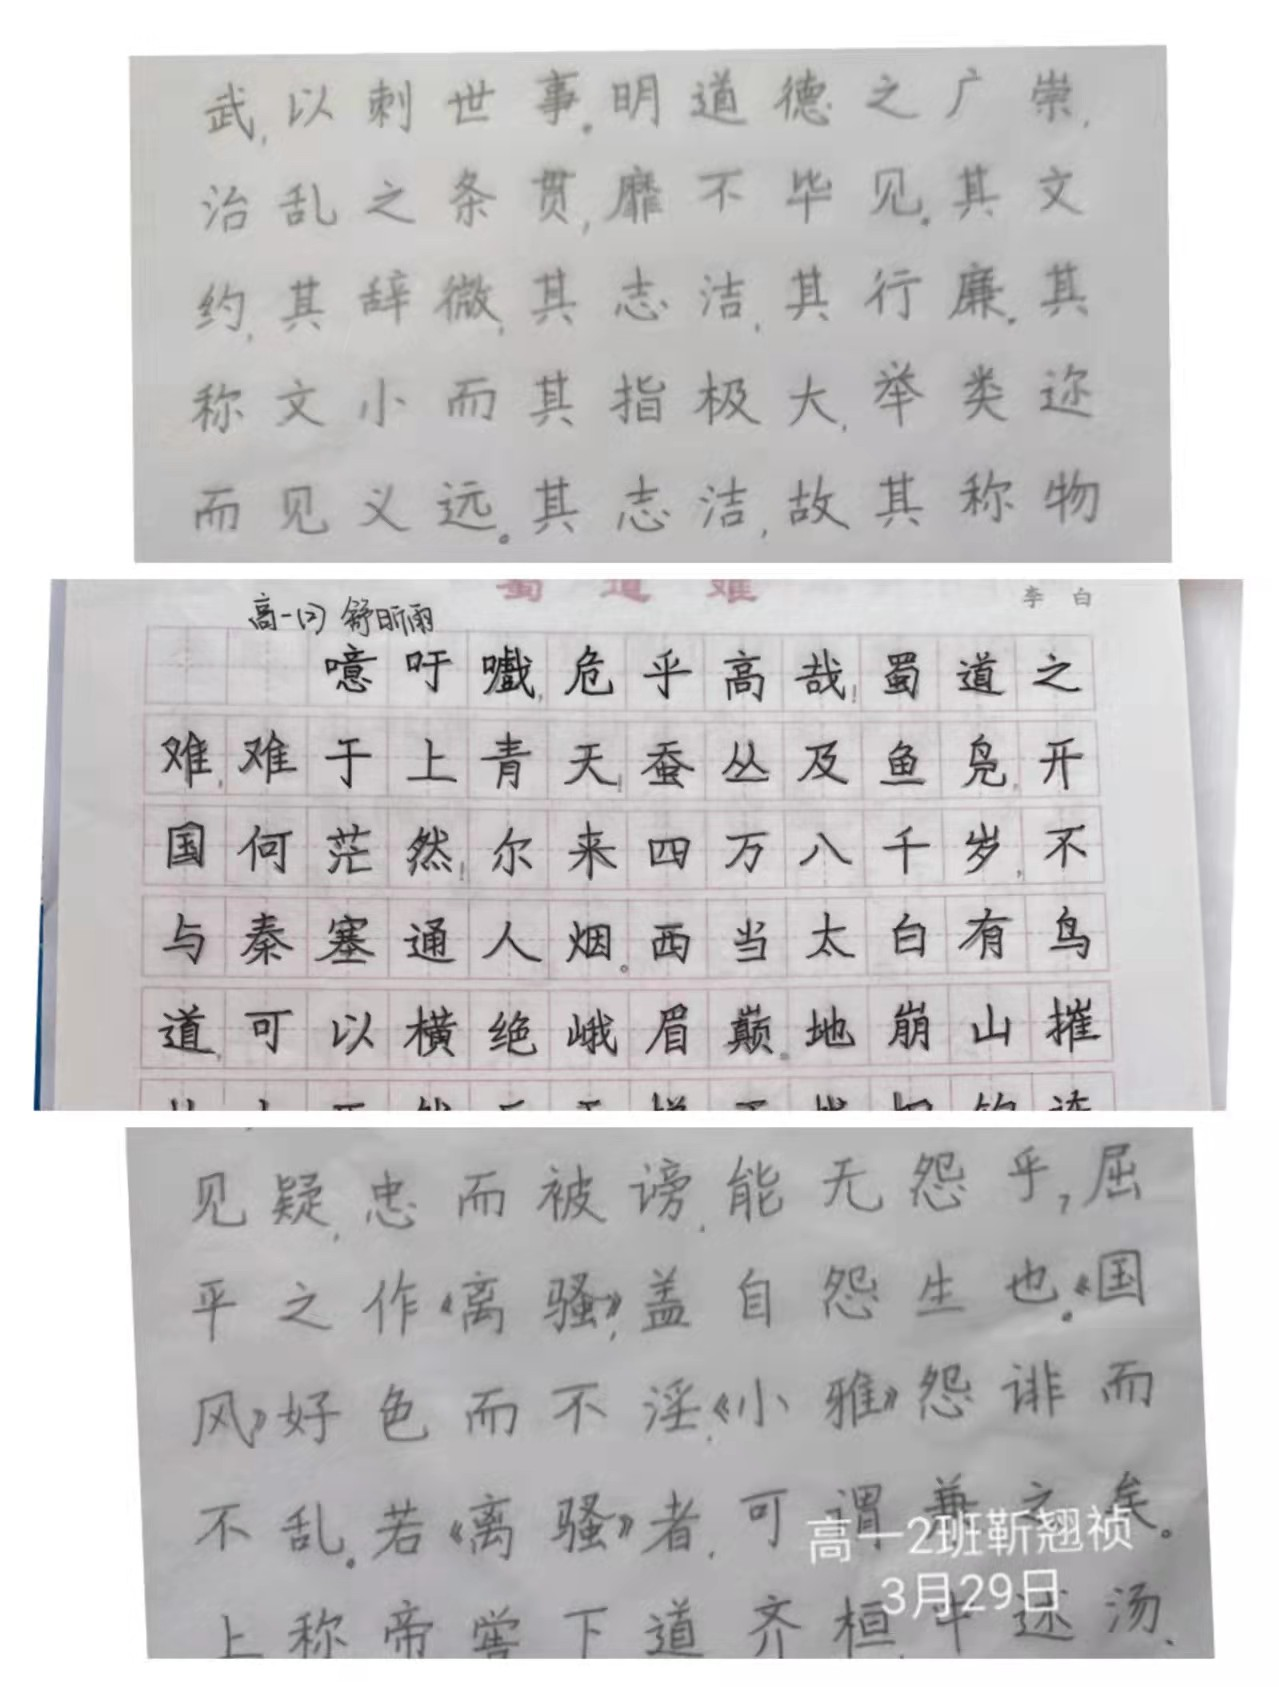 武,以刺世事。明道德之广崇,
治乱之条贯,靡不毕见。其文
约,其辞微,其志洁,其行廉。其
称文小而其指极大,举类迩
而见义远。其志洁,故其称物
蜀道难
李白
高一(2) 舒昕雨
噫吁嚱,危乎高哉!蜀道之
难,难于上青天!蚕丛及鱼凫,开
国何茫然!尔来四万八千岁,不
与秦塞通人烟。西当太白有鸟
道,可以横绝峨眉巅。地崩山摧
见疑,忠而被谤,能无怨乎,屈
平之作《离骚》,盖自怨生也。《国
风》好色而不淫,《小雅》怨诽而
不乱。若《离骚》者,可谓兼之矣。
上称帝喾,下道齐桓,中述汤、
高一2班靳翘祯
3月29日